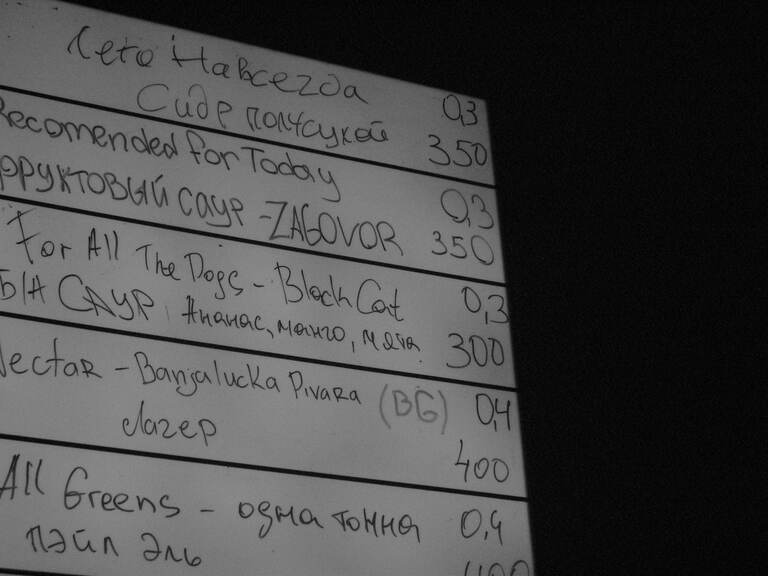 Лето Навсегда 0,3
Сидр полусухой 350
Recomended for Today 0,3
фруктовый саур - ZAGOVOR 350
For All The Dogs - Black Cat 0,3
Б/А САУР Ананас, манго, мята. 300
Nectar - Banjalucka Pivara (BG) 0,4
Лагер 400
All Greens - одна тонна 0,4
пэйл эль 400